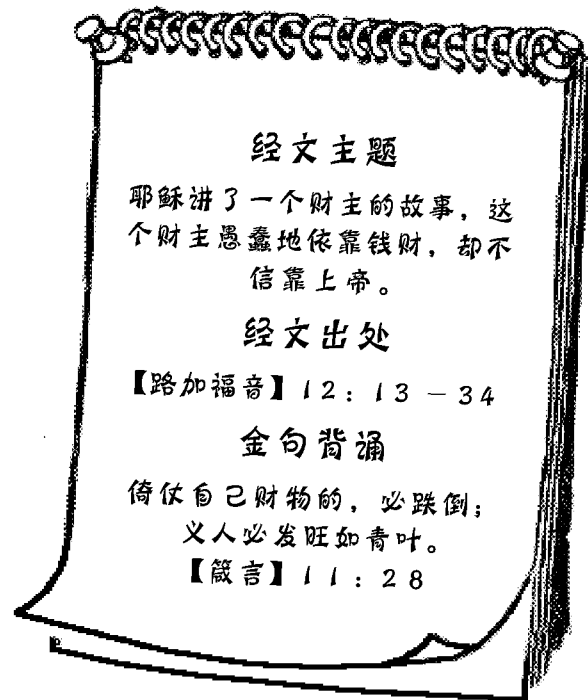 经文主题
耶稣讲了一个财主的故事，这
个财主愚蠢地依靠钱财，却不
信靠上帝。
经文出处
【路加福音】12：13－34
金句背诵
倚仗自己财物的，必跌倒；
义人必发旺如青叶。
【箴言】11：28